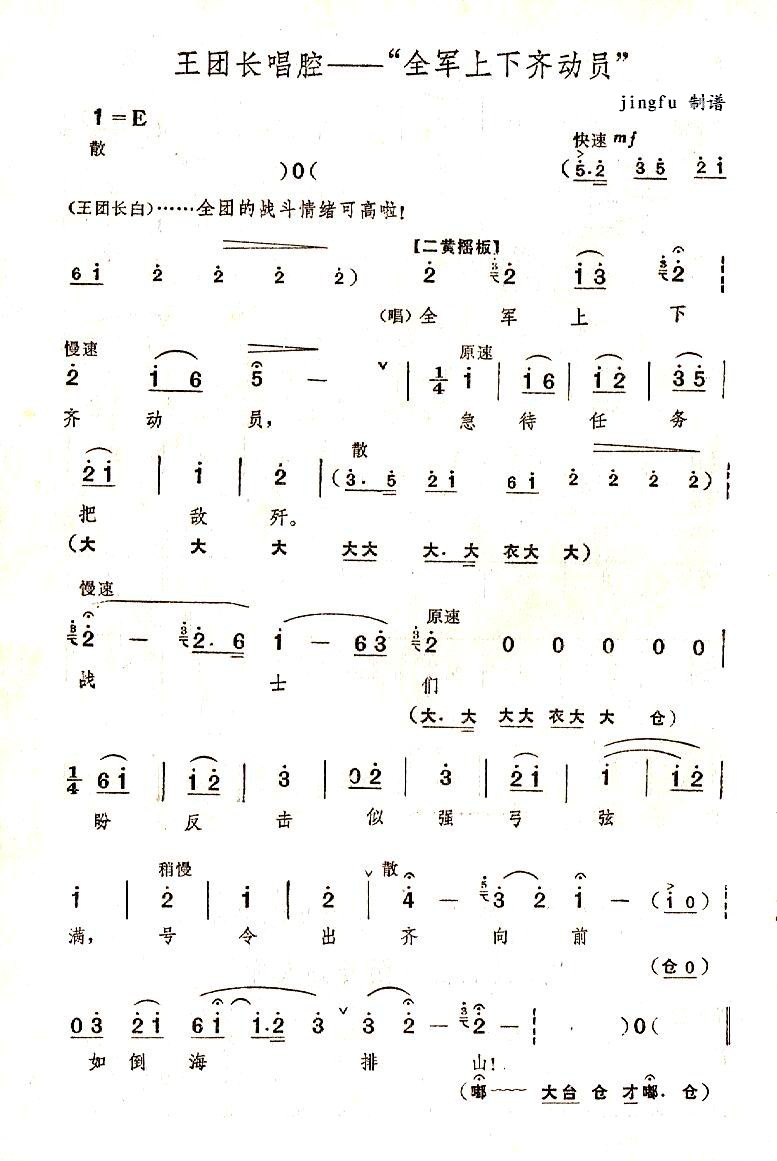 王团长唱腔——“全军上下齐动员”
jingfu 制谱
1=E
散
快速 mf
)0(
(5·2 35 21
(王团长白)……全团的战斗情绪可高啦!
【二黄摇板】
61 2 2 2 2) 2 3 2 13 3 2
(唱)全 军 上 下
慢速 原速
2 16 5 — ∨ | 1/4 1 | 16 | 12 | 35 |
齐 动 员, 急 待 任 务
散
21 | 1 | 2 | (3·5 21 61 2 2 2 2)
把 敌 歼。
(大 大 大 大大 大·大 衣大 大)
慢速 原速
3 2 — 3 2·6 1 — 63 3 2 0 0 0 0 0 |
战 士 们
(大·大 大大 衣大 大 仓)
1/4 61 | 12 | 3 | 02 | 3 | 21 | 1 | 12 |
盼 反 击 似 强 弓 弦
稍慢 ∨ 散
1 | 2 | 1 | 2 | 4 — 5 3 2 1 — (10)
满, 号 令 出 齐 向 前
(仓0)
03 21 61 1·2 3 ∨ 3 2 — 3 2 — )0( ‖
如 倒 海 排 山!
(嘟—— 大台 仓 才嘟·仓)